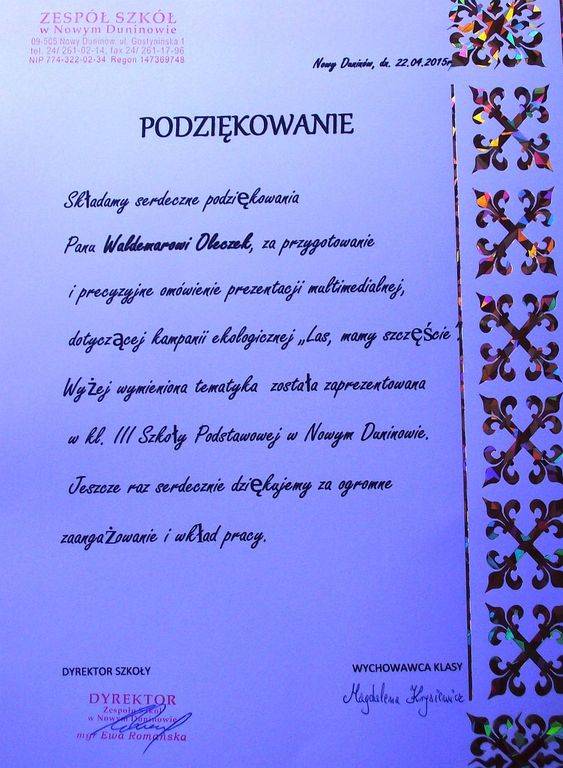 ZESPÓŁ SZKÓŁ
w Nowym Duninowie
09-505 Nowy Duninów, ul. Gostynińska 1
tel. 24/ 261-02-14, fax 24/ 261-17-96
NIP 774-322-02-34 Regon 147369748
Nowy Duninów, dn. 22.04.2015r.
PODZIĘKOWANIE
Składamy serdeczne podziękowania
Panu Waldemarowi Oleczek, za przygotowanie
i precyzyjne omówienie prezentacji multimedialnej,
dotyczącej kampanii ekologicznej „Las, mamy szczęście”.
Wyżej wymieniona tematyka została zaprezentowana
w kl. III Szkoły Podstawowej w Nowym Duninowie.
Jeszcze raz serdecznie dziękujemy za ogromne
zaangażowanie i wkład pracy.
DYREKTOR SZKOŁY
WYCHOWAWCA KLASY
Magdalena Krysiewicz
DYREKTOR
Zespołu Szkół
w Nowym Duninowie
mgr Ewa Romańska